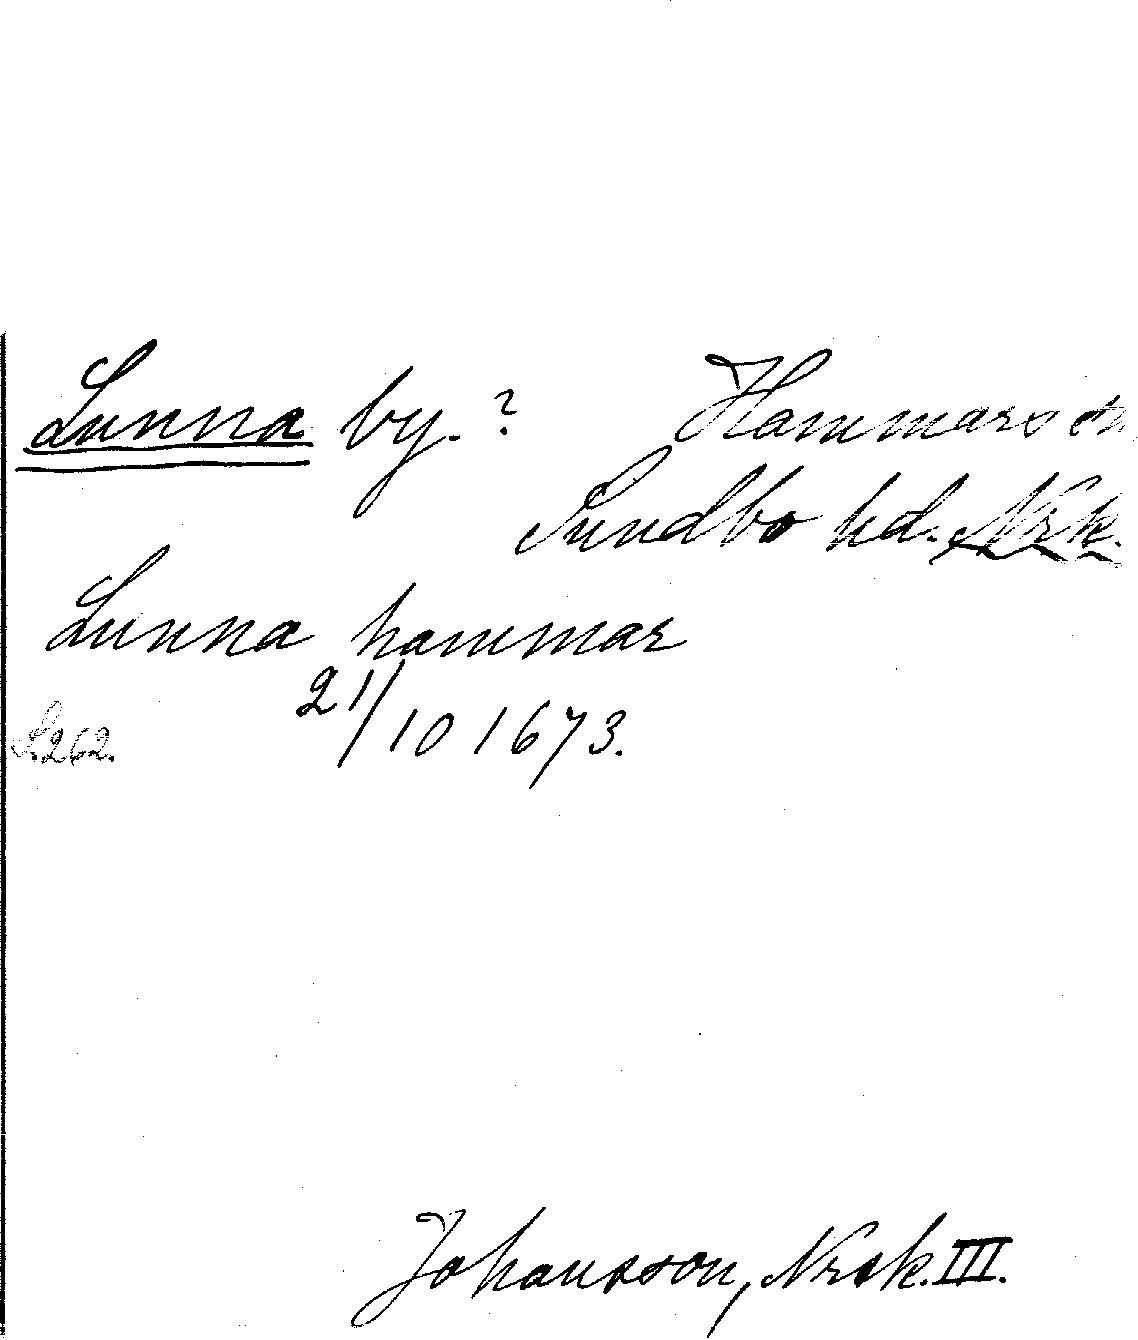 Lunna by. ? Hammars sn,
Sundbo hd. Nrk.
Lunna hammar
21/10 1673.
S. 262.
Johansson, Nrsk. III.